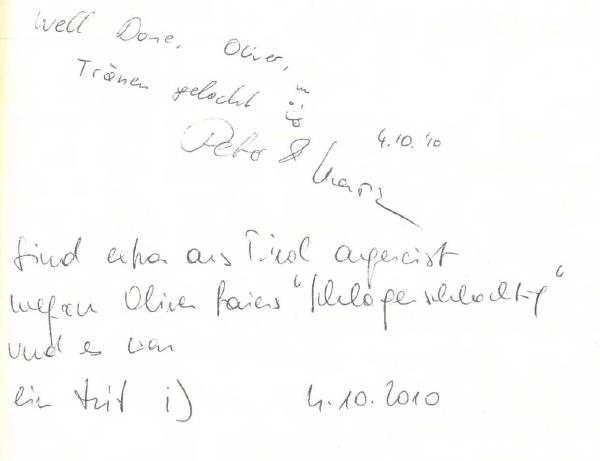 Well Done, Oliver,
Tränen gelacht
4.10.'10
Petra &
sind extra aus Tirol angereist
wegen Oliver Baiers "Schlagerschlachtig"
und es war
ein Hit ;)
4.10.2010